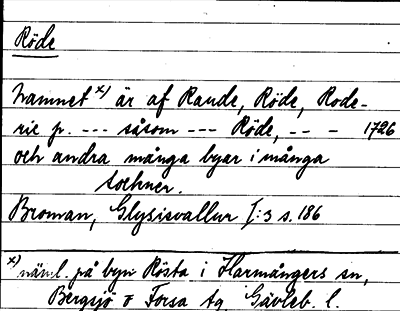 Röde
Namnet x) är af Raude, Röde, Rode-
ric p. --- såsom --- Röde, -- - 1726
och andra många byar i många
Sochner.
Broman, Glysisvallur I:3 s. 186
x) näml. på byn Rösta i Harmångers sn,
Bergsjö o Forsa tg Gävleb. l.